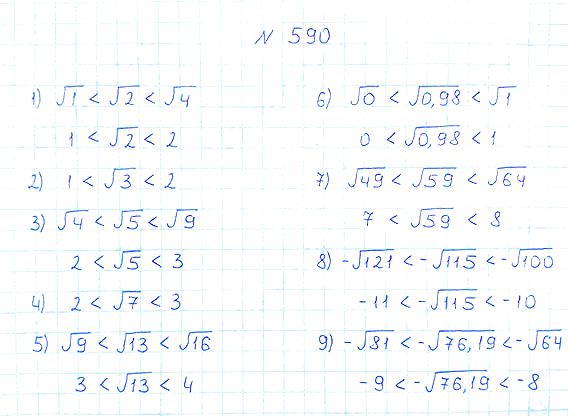 № 590
1) √1 < √2 < √4
1 < √2 < 2
2) 1 < √3 < 2
3) √4 < √5 < √9
2 < √5 < 3
4) 2 < √7 < 3
5) √9 < √13 < √16
3 < √13 < 4
6) √0 < √0,98 < √1
0 < √0,98 < 1
7) √49 < √59 < √64
7 < √59 < 8
8) -√121 < -√115 < -√100
-11 < -√115 < -10
9) -√81 < -√76,19 < -√64
-9 < -√76,19 < -8